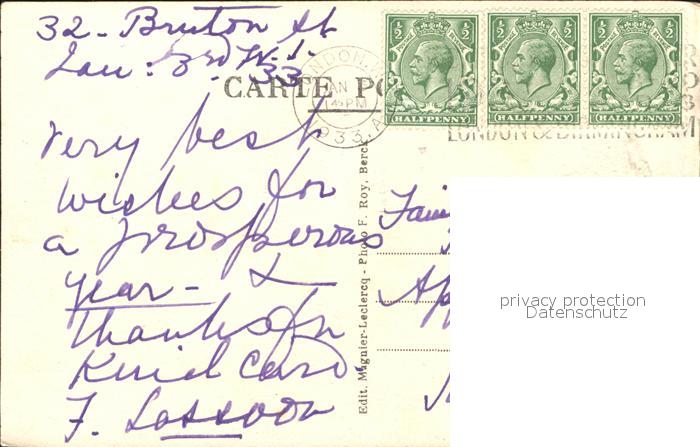 32 - Bruton St
W. 1.
Jan: 3rd 33
CARTE PO
Very best
wishes for
a prosperous
year - &
thanks for
Kind Card.
F. Sassoon
Edit. Magnier-Leclercq - Photo F. Roy, Berck
½ ½
POSTAGE
HALFPENNY
½ ½
POSTAGE
HALFPENNY
½ ½
POSTAGE
HALFPENNY
LONDON
JAN
145 PM
1933
LONDON & BIRMINGHAM
privacy protection
Datenschutz